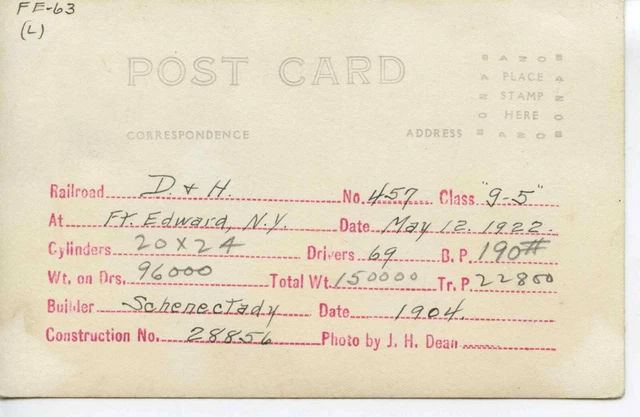 FE-63
(L)
POST CARD
AZOE
PLACE
STAMP
HERE
AZOE
CORRESPONDENCE ADDRESS
Railroad D. & H. No. 457 Class "g-5"
At Ft. Edward, N.Y. Date May 12. 1922.
Cylinders 20 x 24 Drivers 69 B. P. 190#
Wt. on Drs. 96000 Total Wt. 150000 Tr. P. 22800
Builder Schenectady Date 1904.
Construction No. 28856 Photo by J. H. Dean